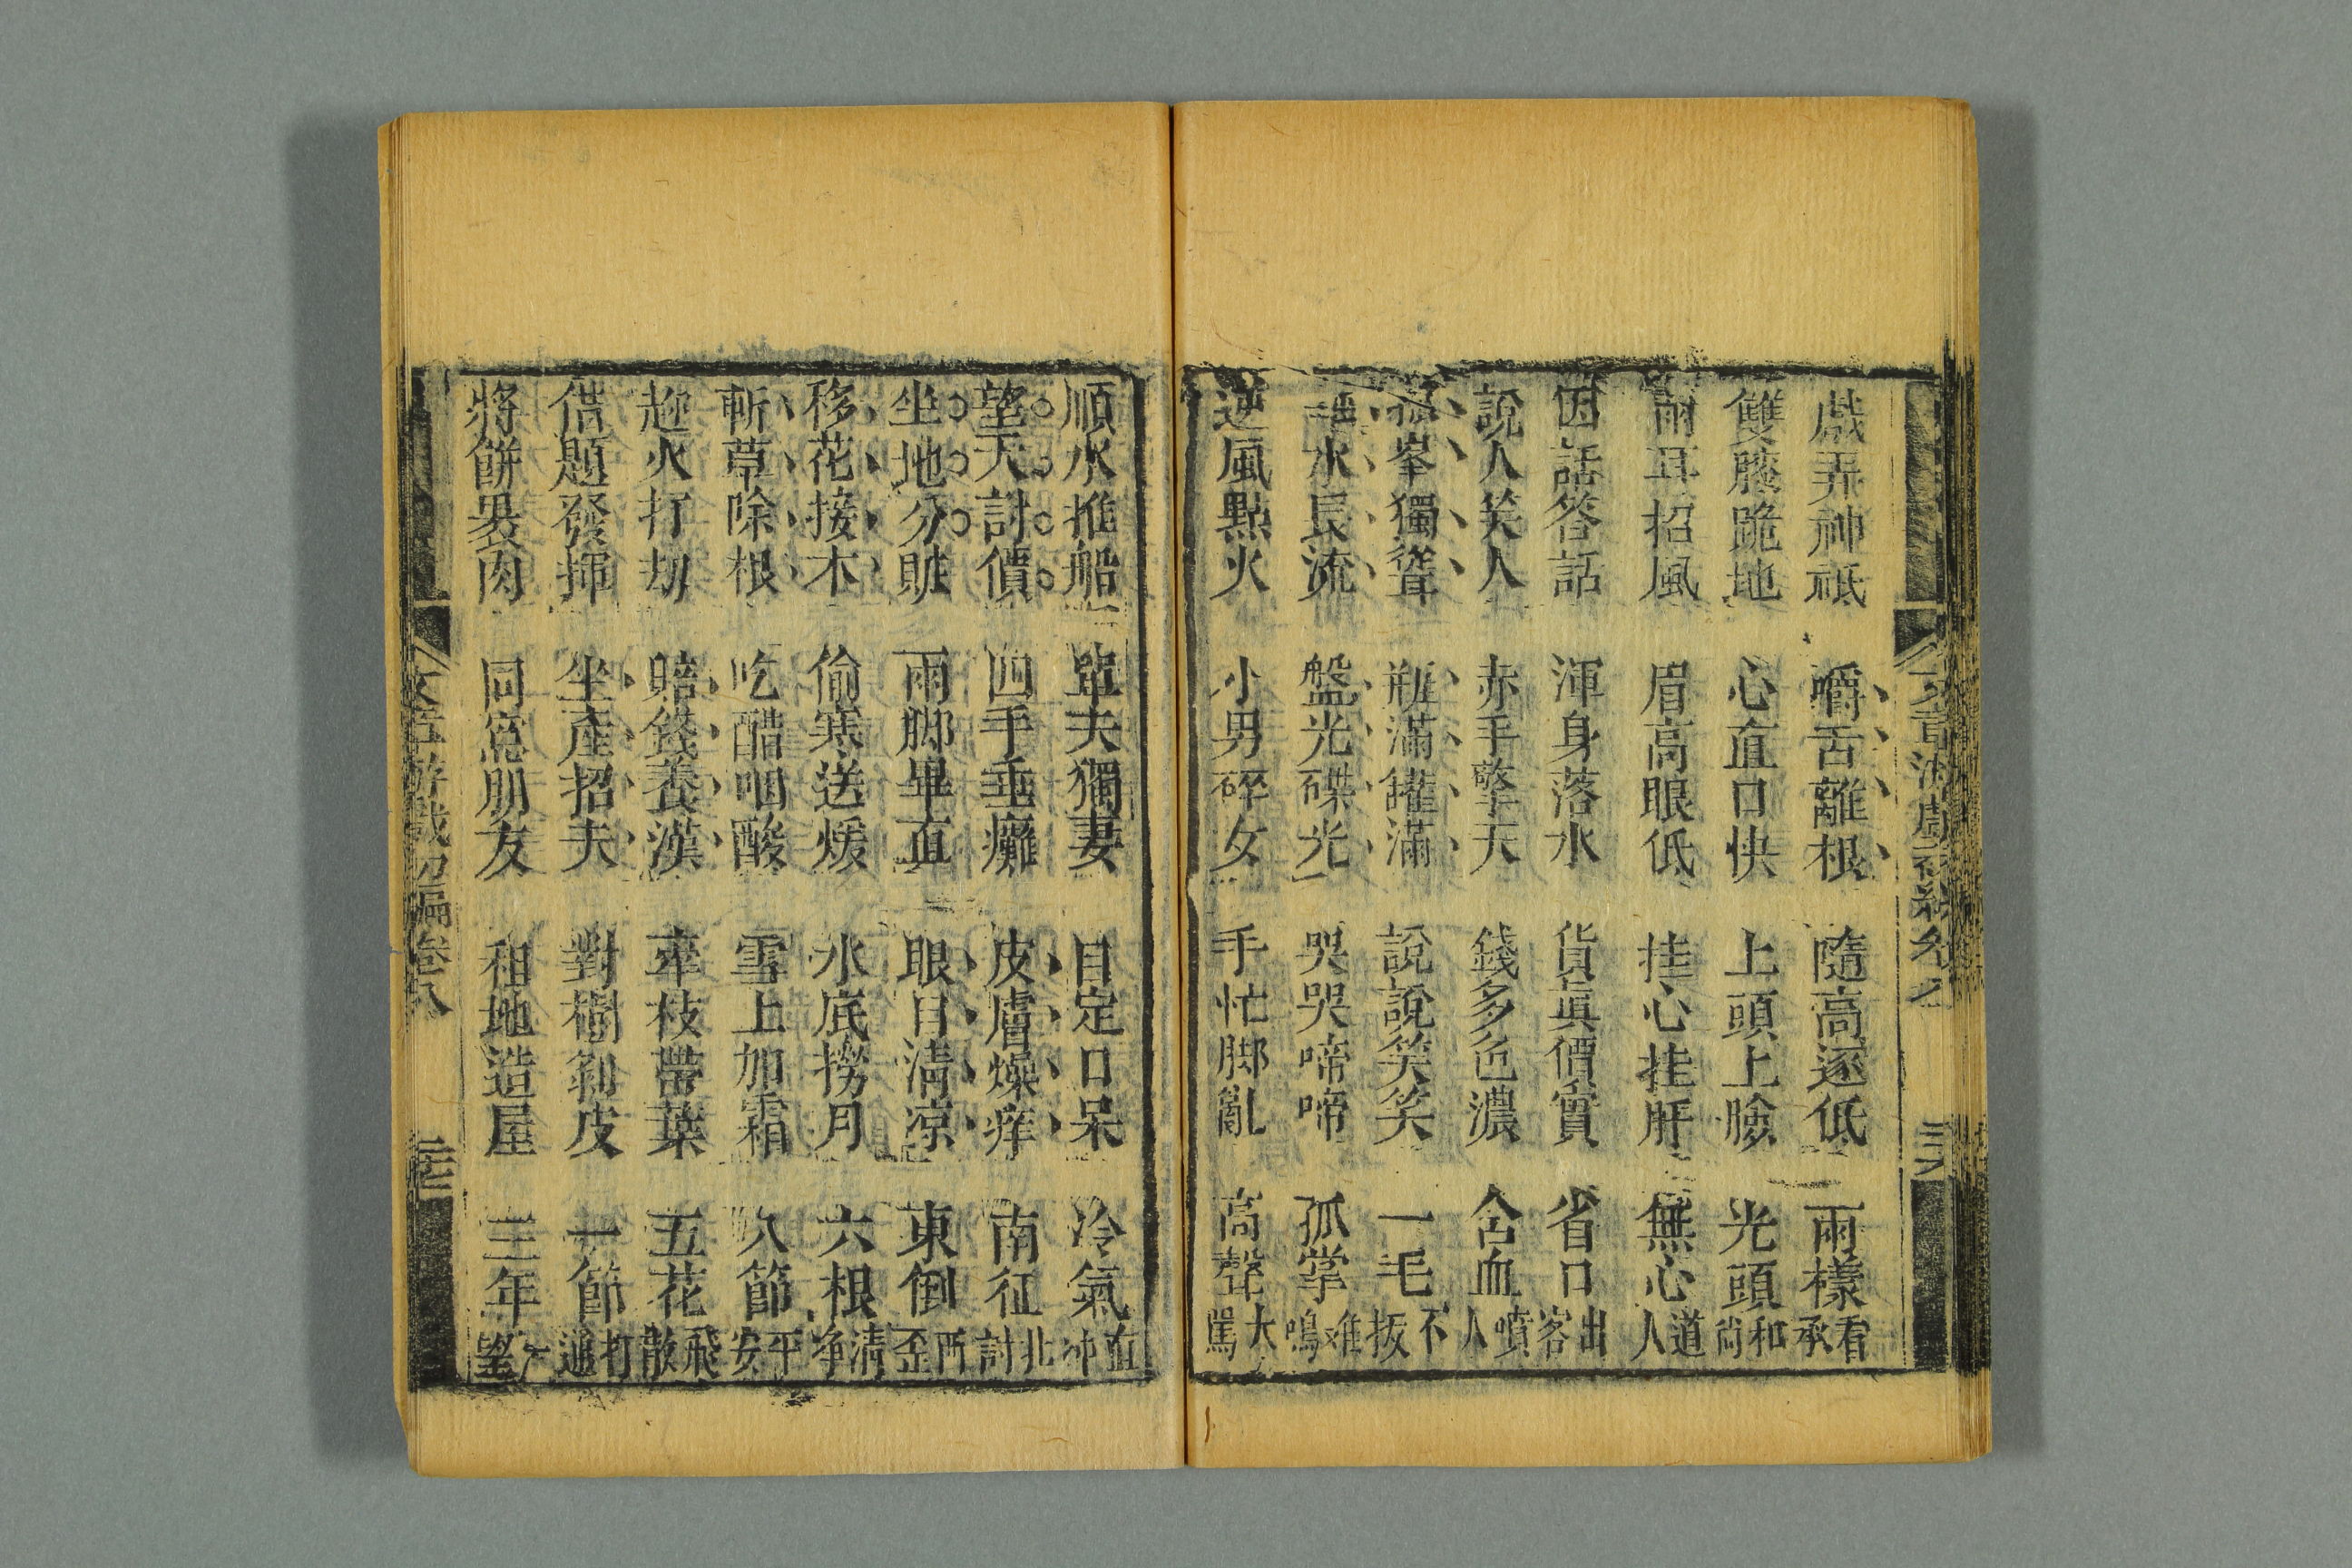 戲弄神祗　嚼舌離根　隨高逐低　兩樣看承
雙膝跪地　心直口快　上頭上臉　光頭和尚
兩耳招風　眉高眼低　挂心挂肝　無心道人
因話答話　渾身落水　貨眞價實　省口出客
說人笑人　赤手擎天　錢多色濃　含血噴人
孤峯獨聳　瓶滿罐滿　說說笑笑　一毛不拔
水長流　盤光碟光　哭哭啼啼　孤掌难鳴
逆風點火　小男碎女　手忙脚亂　高聲大罵
順水推船　單夫獨妻　目定口呆　冷氣直冲
望天討價　四手垂癱　皮膚燥痒　南征北討
坐地分賍　兩脚畢直　眼目清凉　東倒西歪
移花接木　偷寒送煖　水底撈月　六根清净
斬草除根　吃醋咽酸　雪上加霜　八節平安
趂火打刼　賠錢養漢　牽枝帶葉　五花飛散
借題發揮　坐產招夫　對樹剝皮　一節打通
將餅裹肉　同窻朋友　租地造屋　三年望
文章游戲初編卷八